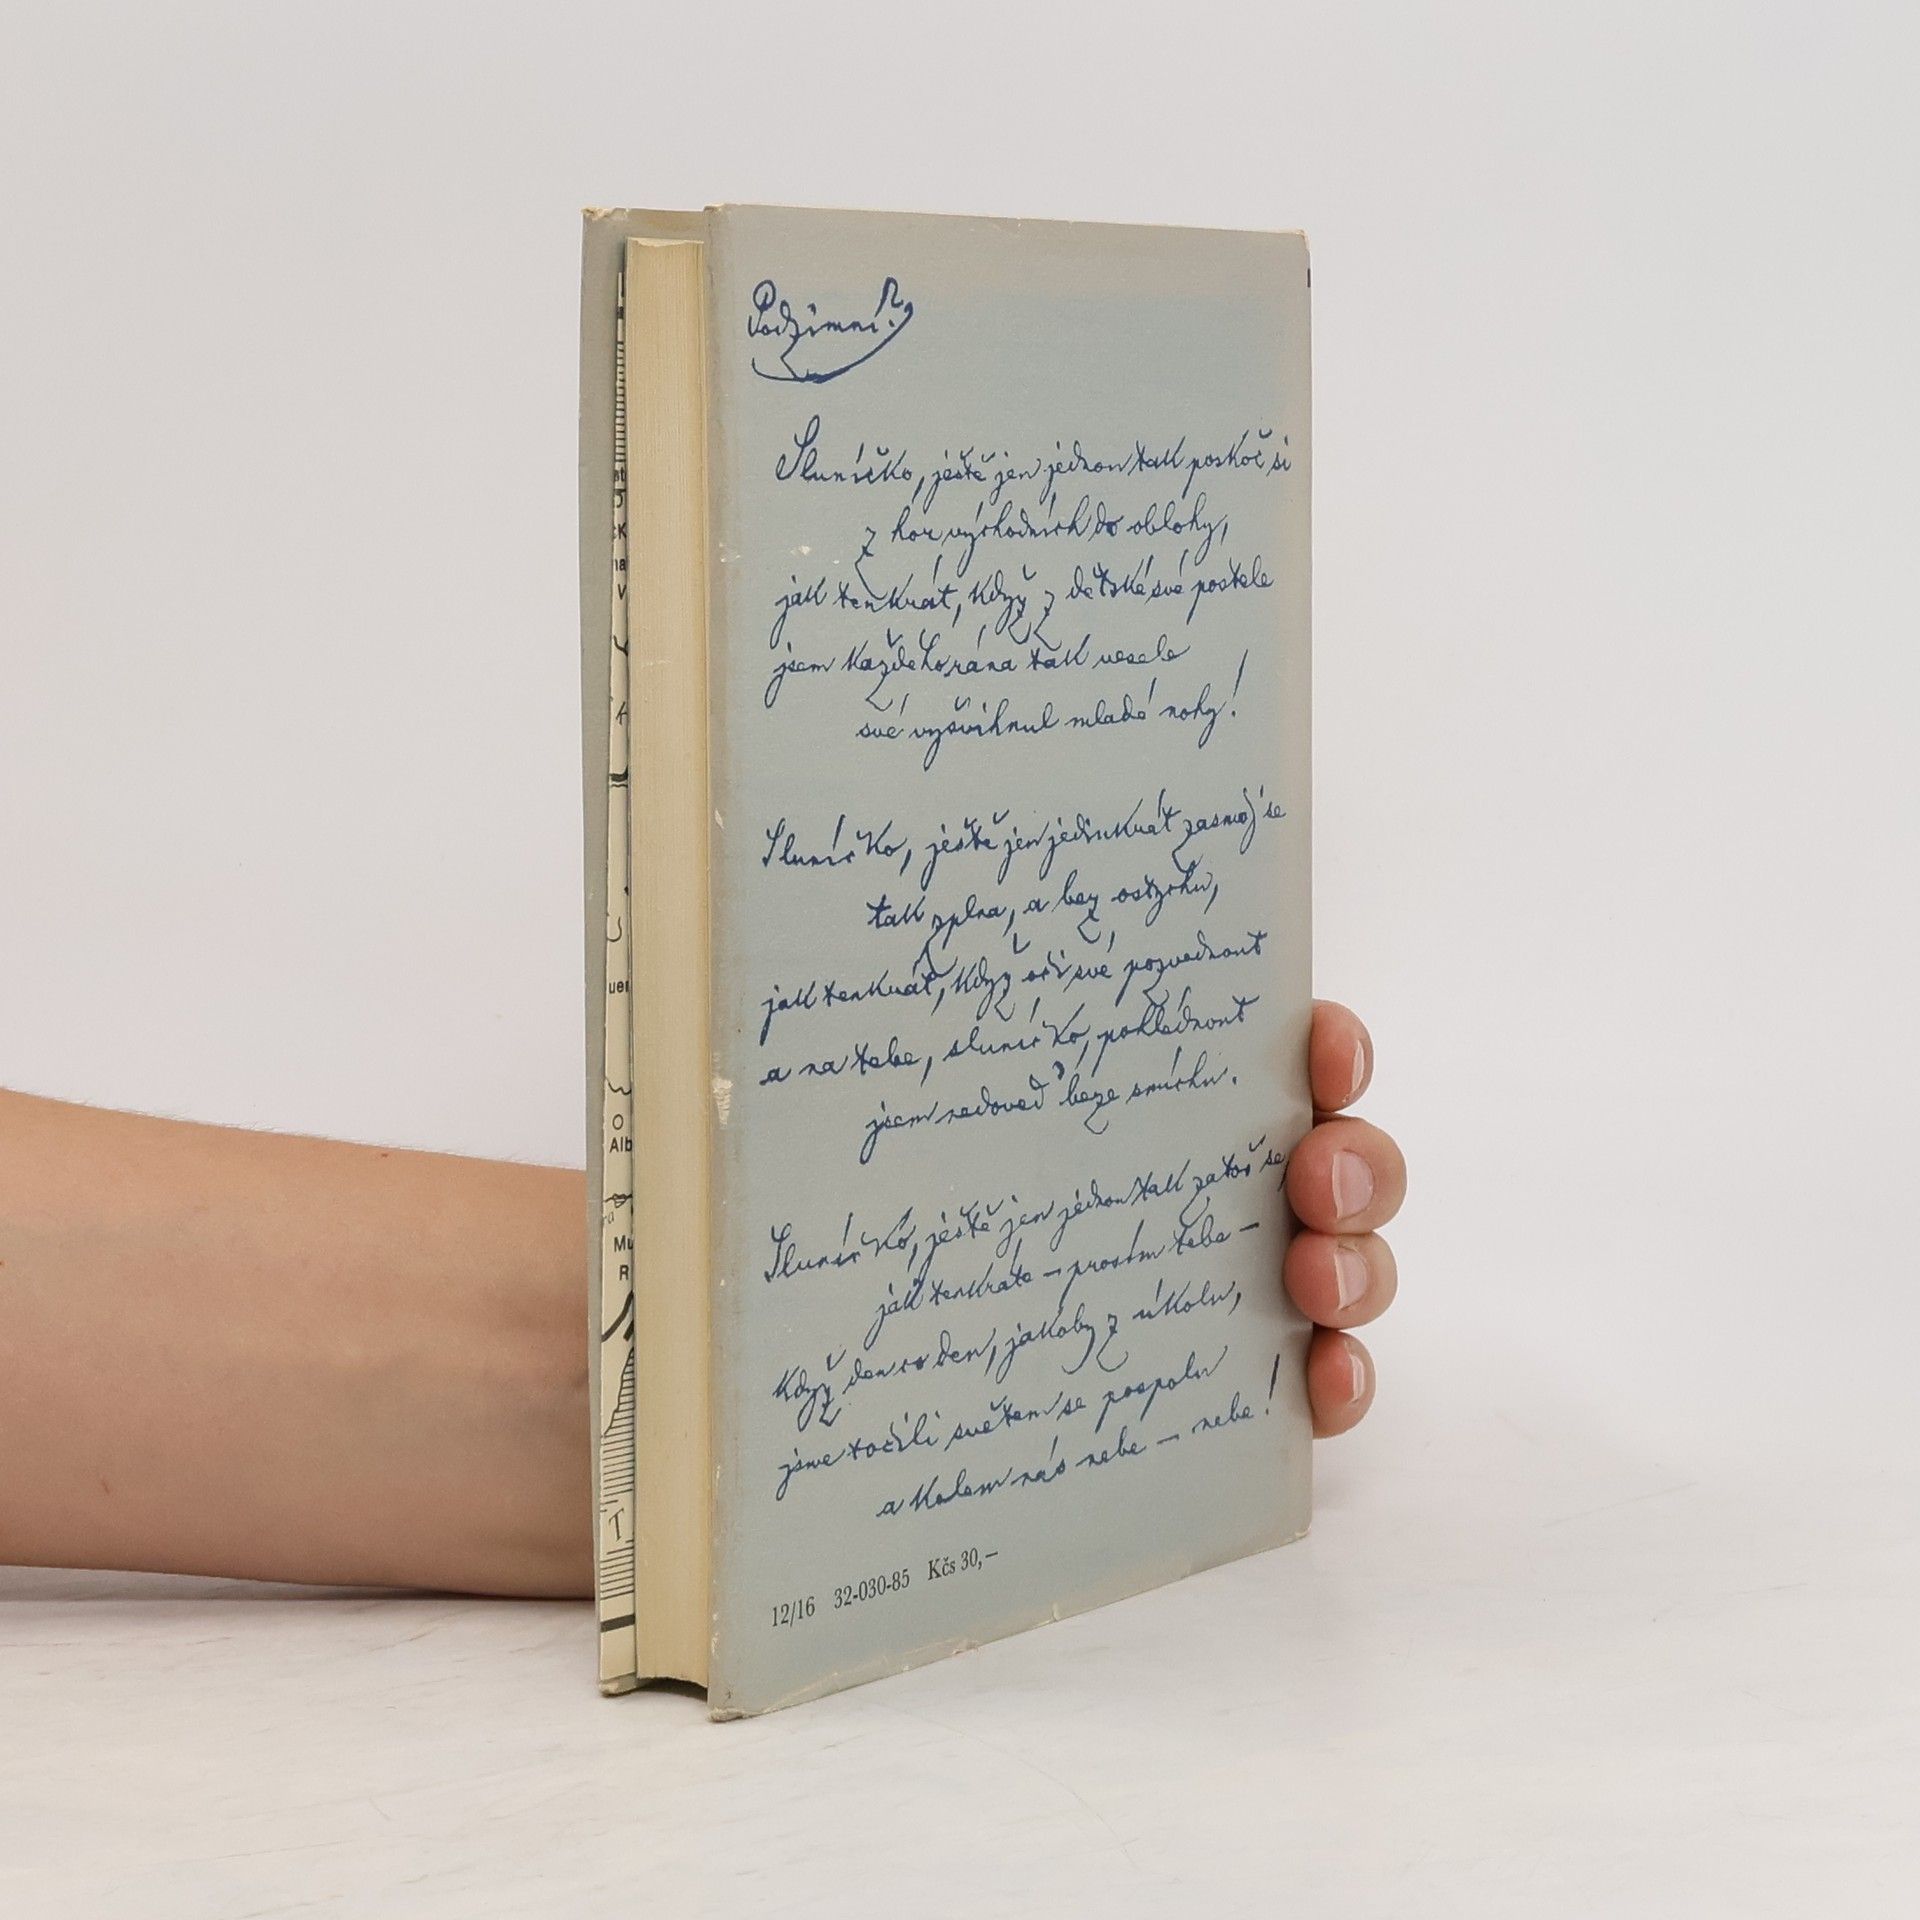 Podzimní.
Sluníčko, ještě jen jednou tak poskoč si
z hor východních do oblohy,
jak tenkrát, když z dětské své postele
jsem každého rána tak vesele
své vyšvihnul mladé nohy!
Sluníčko, ještě jen jedinkrát zasměj se
tak zplna, a bez ostychu,
jak tenkrát, když oči své pozvednout
a na tebe, sluníčko, pohlédnout
jsem nedoveď beze smíchu.
Sluníčko, ještě jen jednou tak zatoč se,
jak tenkráte – prosím tebe –
když den co den, jakoby z úkolu,
jsme točili světem se pospolu
a kolem nás nebe – nebe!
12/16 32-030-85 Kčs 30,–
uer
Alb
Mu
R
T